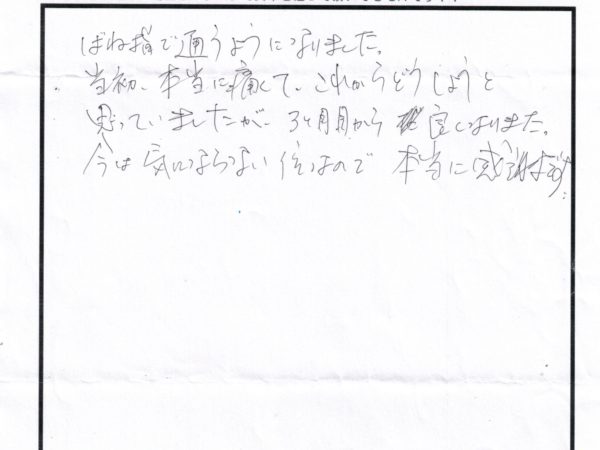 ばね指で通うようになりました。
当初、本当に痛くて、これからどうしようと
思っていましたが、3ヶ月目から 良くなりました。
今は気にならない位なので 本当に感謝です